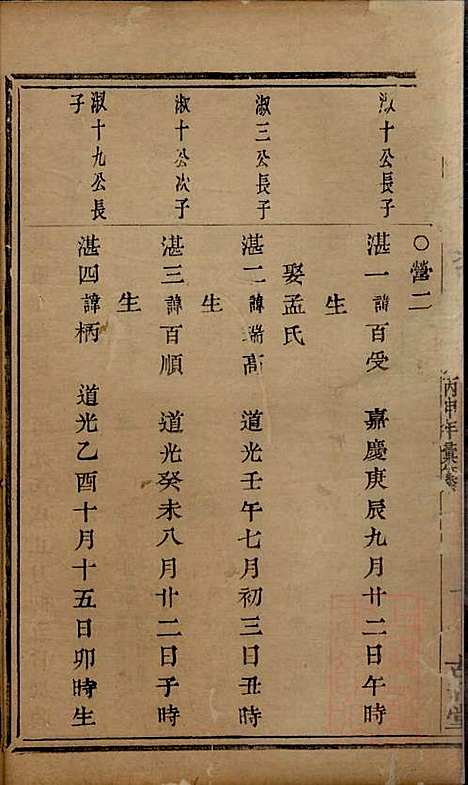 ○營二
淑十公長子
湛一諱百受 嘉慶庚辰九月廿二日午時
生
娶孟氏
淑三公長子
湛二諱瑞高 道光壬午七月初三日丑時
生
淑十公次子
湛三諱百順 道光癸未八月廿二日子時
生
淑十九公長
子
湛四諱柄 道光乙酉十月十五日卯時生
丙申年彙修